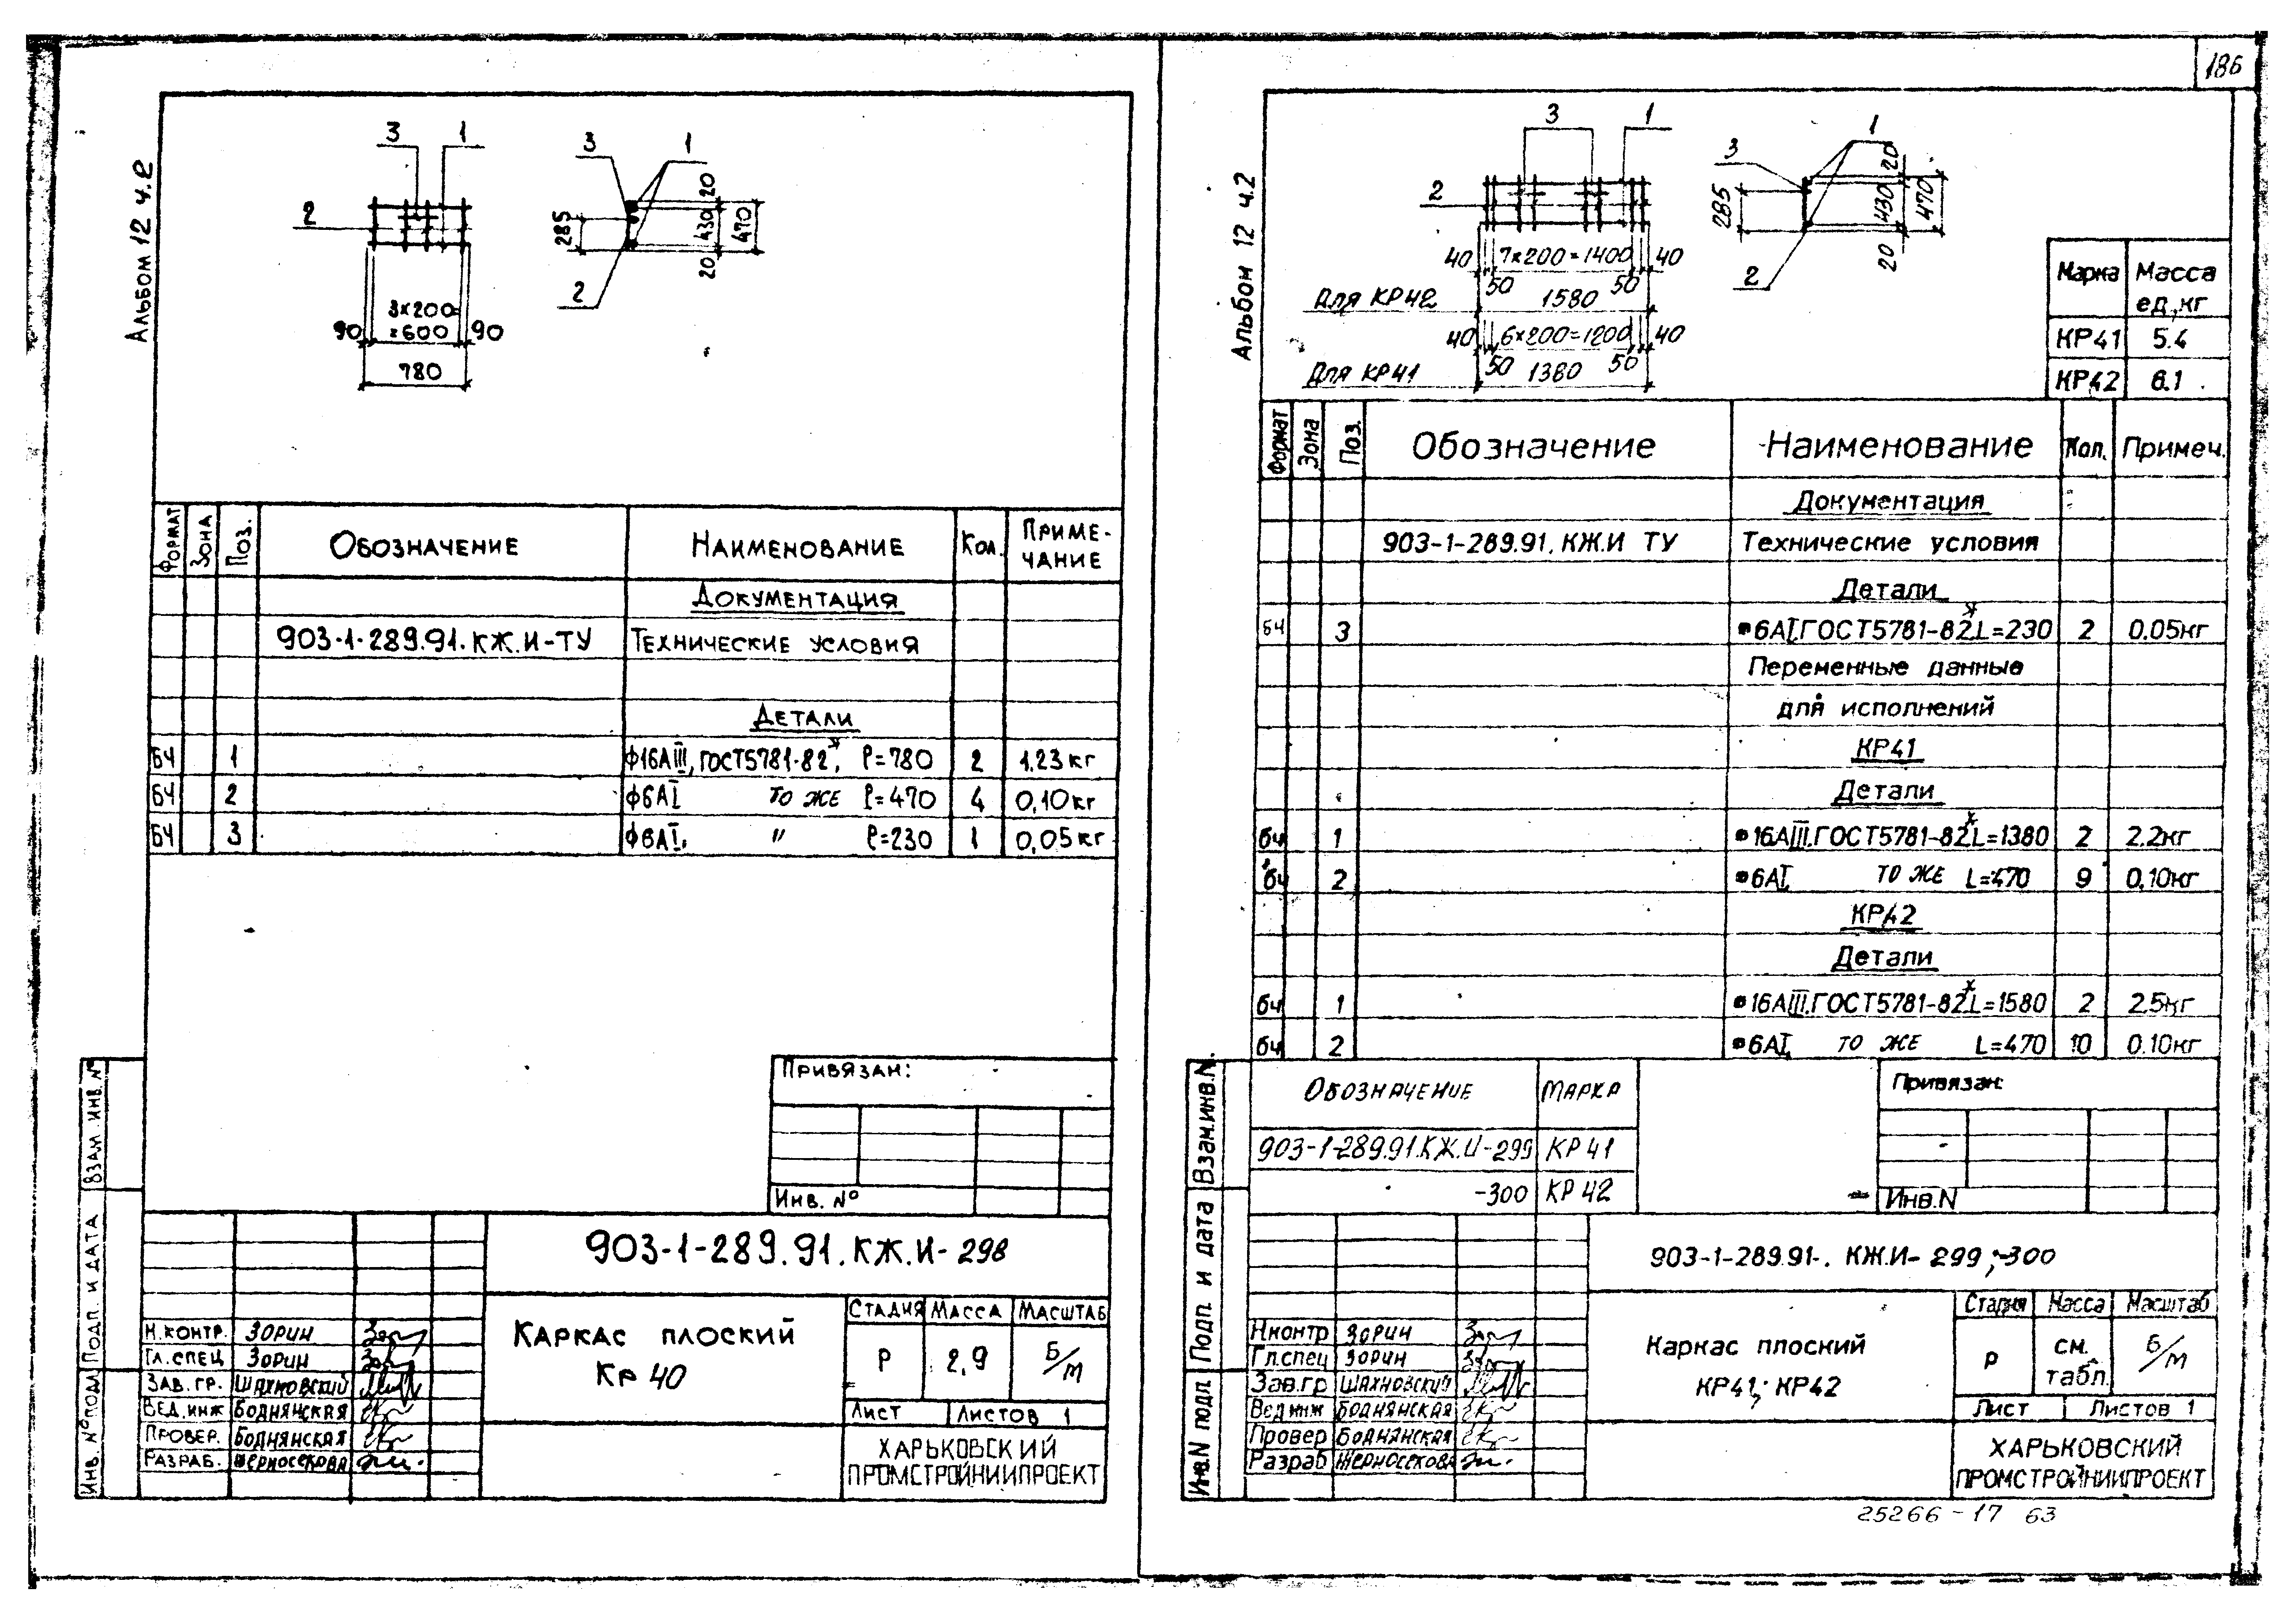 Альбом 12 ч.2
3
1
2
90
3×200=
=600
90
780
3
1
285
20
430
470
20
2
ФОРМАТ
ЗОНА
ПОЗ.
ОБОЗНАЧЕНИЕ
НАИМЕНОВАНИЕ
КОЛ.
ПРИМЕ-
ЧАНИЕ
ДОКУМЕНТАЦИЯ
903-1-289.91.КЖ.И-ТУ ТЕХНИЧЕСКИЕ УСЛОВИЯ
ДЕТАЛИ
БЧ 1 ф16АIII, ГОСТ5781-82*, ℓ=780 2 1.23кг
БЧ 2 ф6АI ТО ЖЕ ℓ=470 4 0,10кг
БЧ 3 ф6АI, " ℓ=230 1 0,05кг
ПРИВЯЗАН:
ИНВ. №
ВЗАМ. ИНВ. №
ПОДП. И ДАТА
ИНВ. № ПОДЛ
903-1-289.91.КЖ.И-298
Н.КОНТР. ЗОРИН
ГЛ.СПЕЦ ЗОРИН
ЗАВ. ГР. ШАХНОВСКИЙ
ВЕД.ИНЖ БОДНЯНСКАЯ
ПРОВЕР. БОДНЯНСКАЯ
РАЗРАБ. ЧЕРНОСЕКОВА
КАРКАС ПЛОСКИЙ
КР 40
СТАДИЯ МАССА МАСШТАБ
Р 2,9 Б/М
ЛИСТ ЛИСТОВ 1
ХАРЬКОВСКИЙ
ПРОМСТРОЙНИИПРОЕКТ
186
Альбом 12 ч.2
3
1
2
40 7×200=1400 40
50 50
Для КР42 1580
40 6×200=1200 40
50 50
Для КР41 1380
3
1
285
20
430
470
20
2
Марка Масса
ед,кг
КР41 5.4
КР42 6.1
Формат
Зона
Поз.
Обозначение
Наименование
Кол.
Примеч.
Документация
903-1-289.91.КЖ.И ТУ Технические условия
Детали
БЧ 3 •6АI,ГОСТ5781-82*,L=230 2 0.05кг
Переменные данные
для исполнений
КР41
Детали
бч 1 •16АIII,ГОСТ5781-82*,L=1380 2 2.2кг
бч 2 •6АI, ТО ЖЕ L=470 9 0.10кг
КР42
Детали
бч 1 •16АIII,ГОСТ5781-82*,L=1580 2 2.5кг
бч 2 •6АI, ТО ЖЕ L=470 10 0.10кг
ОБОЗНАЧЕНИЕ МАРКА
903-1-289.91.КЖ.И-299 КР41
-300 КР42
Привязан:
Инв.N
Взам.инв.N.
Подп. и дата
Инв.N подл
903-1-289.91-. КЖ.И- 299;-300
Н.контр ЗОРИН
Гл.спец ЗОРИН
Зав.гр ШАХНОВСКИЙ
Вед.инж БОДНЯНСКАЯ
Провер БОДНЯНСКАЯ
Разраб ЧЕРНОСЕКОВА
Каркас плоский
КР41; КР42
Стадия Масса Масштаб
Р см.
табл. Б/М
Лист Листов 1
ХАРЬКОВСКИЙ
ПРОМСТРОЙНИИПРОЕКТ
25266-17 63